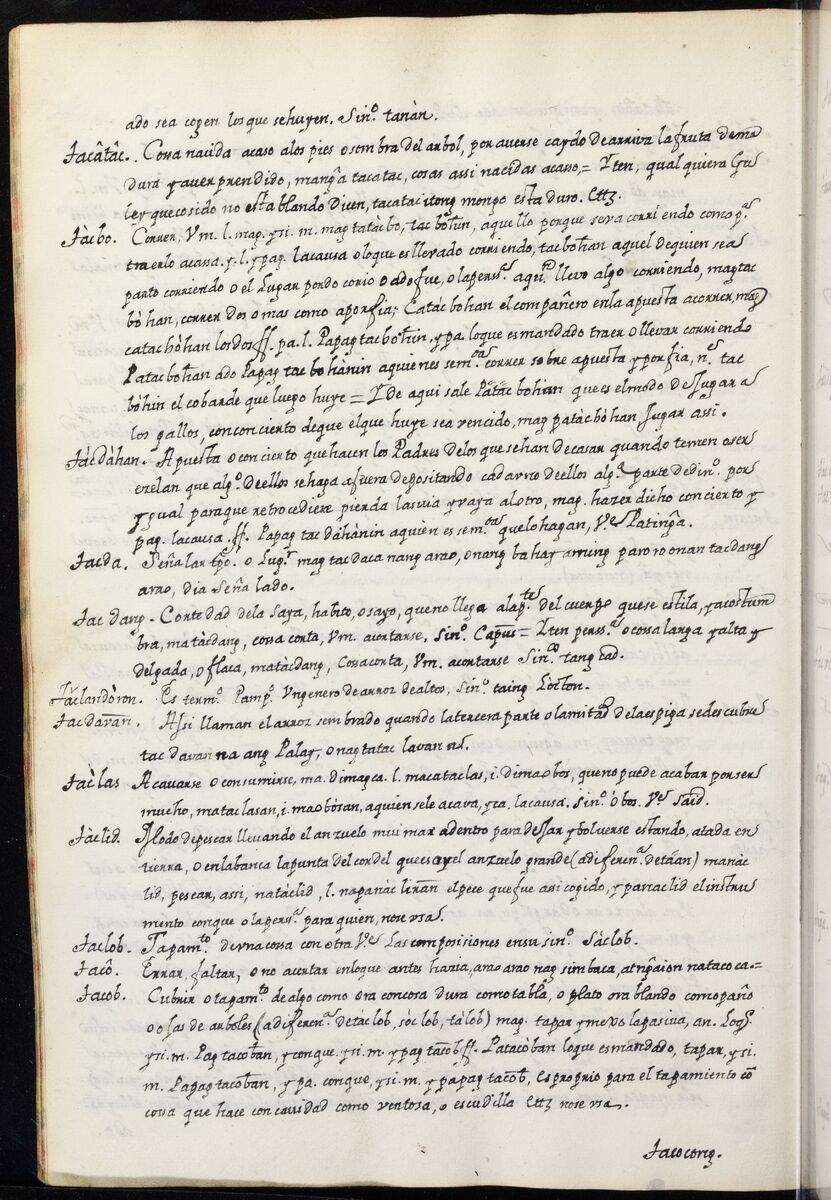 ado sea cogen los que se huyen. Sinº. tanàn.
tacâtâc. Cossa nacida acaso a los pies o sombra del arbol, por averse caydo de arriva la fruta dema
dura y aver prendido, mangª tacatac, cosas assi nacidas acasso, = Yten, qual quiera Gu
ley que cosido no esta blando Dicen, tacatac itong mongo esta duro. Ettz.
tàcbo. Correr, Vm. l. mag. ysi. m. mag tatàcbo, tac bohin, aquello porque se va corriendo como pª
traerlo a cassa. y. l. y pag. la causa o loque es llevado corriendo, tac bohan aquel de quien se a
parto corriendo o el Lugar por do corio o adofue, o la persª. aquiⁿ llevo algo corriendo, mag tac
bò han, correr dos o mas como aporfia; Catàc bohan el compañero en la apuesta a correr, mag
catac bòhan los dos ff. pa. l. Papag tac bohin, y pa. loque es mandado traer o llevar corriendo
Patac bohan ado Papag tac bohànin aquien es semᵒᵃ correr sobre apuesta y porfia, nª tac
bòhin el cobarde que luego huye = Y de aqui sale Patàc bohan que es el modo de Jugar a
los gallos, con concierto de que el que huye sea vencido, mag patàc bòhan Jugar assi.
tàc dàhan. Apuesta o concierto que hacen los Padres de los que se han de casar quando temen o ser
erelan que algº. de ellos se haga a fuera depositando cada vno de ellos algª parte de dinº. por
ygual para que retrocediese pierda la suia y vaya al otro, mag. hazer dicho concierto y
pag. la causa. ff. Papag tac dàhànin aquien es semᵒᵃˢ que lo hagan, Vᵉ Patingªa.
tacda. Señalar tpº. o Lugʳ mag tacda ca nang arao, o nang bahay aming paroroonan tacdang
arao, dia señalado.
tac dang. Cortedad dela saya, habito, o sayo, que no llega alapᵗᵉ del cuerpo que se estila, y acostum
bra, matàcdang, cossa corta, Vm. acortarse. sinº. Capus = Yten perssª. o cossa larga y alta y
delgada, o flaca, matàcdang, Cossa corta, Vm. acortarse Sinº. tangcad.
taclandòron. Es termº. Pampº. Vn genero de arroz de altos, sinº. taing Lòcton.
tacdavan. Assi llaman el arroz sembrado quando la tercera parte o la mitad dela espiga se descubre
tac davan na ang Palay, o nag tatac lavan na.
tàclas Acavarse o consumirse, ma. di magca. l. macataclas, i. di maobos, que no puede acabar por ser
mucho, mataclasan, i. maobòsan, aquien sele acava, yca. la causa. sinº. òbos. Vᵉ said.
tàclid. Modo de pescar llevando el anzuelo mui mar adentro para dejar y bolverse estando, atada en
tierra, o en la banca la punta del cordel que es a y el anzuelo grande (a diferenª. de tàan) manàc
lid, pescar, assi, natàclid, l. napanàc liran el pece que fue assi cogido, y panaclid el instru
mento con que o la persª. para quien, nose vsa.
taclob. Tapamᵗᵒ. de vna cossa con otra Vᵉ Las composisiones en su sinº. Sàclob.
tacò. Errar, faltar, o no acertar en lo que antes hazia, arao arao nag simbaca, at ngaion nataco ca.=
tacob. Cubrir o tapamᵗᵒ de algo como ora con cosa dura como tabla, o plato ora blando como paño
o ojas de arboles (a diferenª. de tàclob, sòclob, tàlob) mag. tapar y mexo la pasiva, an. Logʳ.
ysi. m. Pag tacoban, y conque. ysi. m. y pag tacob ff. Patacòban loque es mandado, tapar, ysi.
m. Papag tacoban, y pa. conque, ysi. m. y papag tacob, Es proprio para el tapamiento cō
cossa que hace concauidad como ventosa, o escudilla Ettz nose vsa.
tacocong.